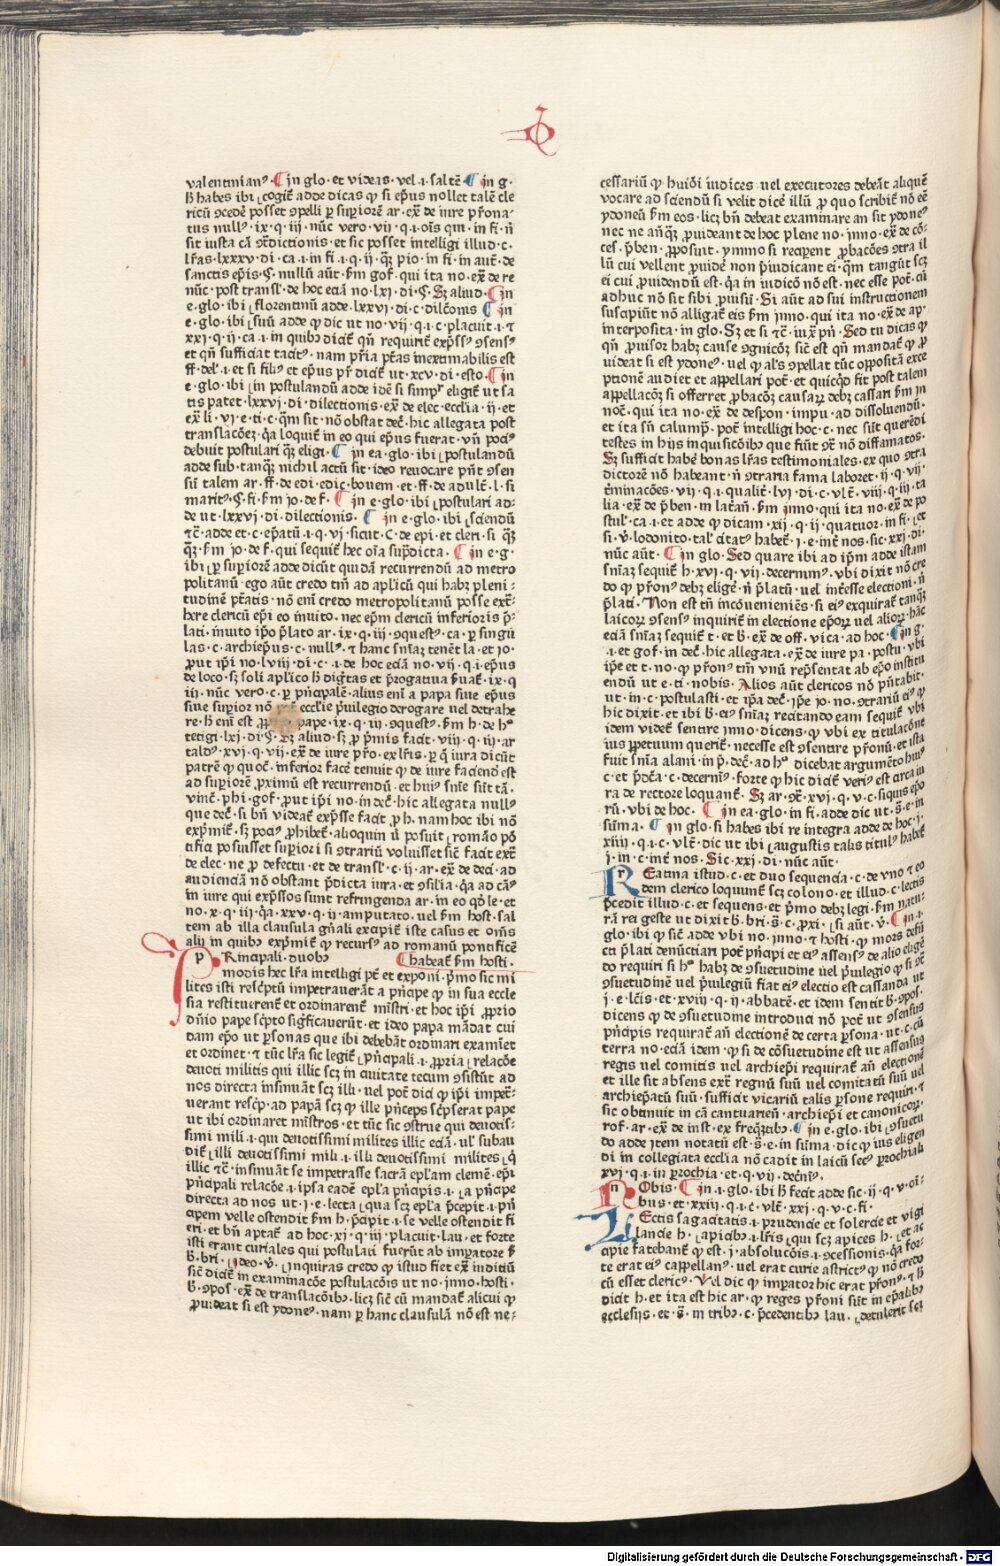 valentinianꝰ · ¶ jn glo · et videas · vel · ı · saltē · ¶ jn g ·
ħ habes ibi ⸤cogit̄ adde dicas ꝙ si ep̄us nollet talē cle
ricū ꝯcedē posset ꝯpelli ꝑ supiorē ar · ex̄ de iure p̄rona ·
tus nullꝰ · ix · q · iij · nūc vero · vij · q · ı · oīs qui · in fi · n̄
sit iusta cā ꝯ̄dictionis · et sic posset intelligi illud · c ·
lr̄as · lxxxv · di · ca · ı · in fi · ı · q · ij · qꝫ pio · in fi · in aut̄ · de
sanctis ep̄is · ꝯ · nullū aūt · ẜm gof · qui ita no · ex̄ de re
nūc · post transl · de hoc eciā no · lxj · di · ꝯ · Sꝫ aliud · ¶ jn
e · glo · ibi ⸤ florentinū adde · lxxvj · di · c · dilc̄onis ¶ jn
e · glo · ibi ⸤ suū adde ꝙ dic ut no · vij · q · ı · c · placuit · ı · ⁊
xxj · q · ij · ca · ı · in quibꝫ dicit̄ qn̄ requirit̄ exp̄ssꝰ ꝯsensꝰ
et qn̄ sufficiat tacitꝰ · nam pr̄ia pt̄as inextimabilis est
ff · del · ı · et si filiꝰ et ep̄us pr̄ dicit̄ ut · xcv · di · esto · ¶ jn
e · glo · ibi ⸤ in postulandū adde idē si simpꝉr eligit̄ ut sa
tis patet · lxxvj · di · dilectionis · ex̄ de elec · ecclia · ij · et
ex̄ li · vj · e · ti · c · qm̄ sit · nō obstat dec̄ · hic allegata post
translacōeꝫ · q̄a loquit̄ in eo qui ep̄us fuerat · vn̄ pociꝰ
debuit postulari qꝫ eligi · ¶ jn ea · glo · ibi ⸤ postulandū
adde sub · tanqꝫ nichil actū sit · ideo revocare pn̄t ꝯsen
sū talem ar · ff · de edi · edic · bouem · et · ff · de adult̄ · l · si
maritꝰ · ꝯ · fi · ẜm jo · de f · ¶ jn e · glo · ibi ⸤ postulari ad ·
de ut · lxxvj · di · dilectionis · ¶ jn e · glo · ibi ⸤ sciendū
⁊c̄ · adde et · c · ep̄atū · ı · q · vj · sicut · C · de epi · et cleri · si qꝫ
qꝫ · ẜm jo · de f · qui sequit̄ hec oīa sup̄dicta · ¶ jn e · g ·
ibi ⸤ ꝑ supiorē adde dicūt quidā recurrendū ad metro
politanū · ego aūt credo tm̄ ad ap̄licū qui habꝫ pleni :
tudinē pt̄atis · nō enī credo metropolitanū posse ext̄ ·
here clericū ep̄i eo inuito · nec ep̄m clericū inferioris p̄ ·
lati · inuito ip̄o p̄lato ar · ix · q · iij · ꝯquestꝰ · ca · ꝑ singu
las · c · archiep̄us · c · nullꝰ · ⁊ hanc sn̄iaꝫ tenēt la · et jo ·
ꝓut ip̄i no · lviij · di · c · ı · de hoc eciā no · vij · q · ı · ep̄us
de loco · sꝫ soli ap̄lico ħ diḡtas et p̄rogatiua ẜuat̄ · ix · q
iij · nūc vero · c · ꝑ p̄ncipalē · alius enī a papa siue ep̄us
siue supior nō ecclie p̄uilegio derogare vel detrahe
re · ħ enī est pape · ix · q · iij · ꝯquestꝰ · ẜm h · de hꝰ
tetigi · lxj · di · ꝯ · Sꝫ aliud · sꝫ ꝓ p̄mis facit · viij · q · iij · ar
taldꝰ · xvj · q · vij · ex̄ de iure pr̄o · ex lr̄is · ꝑ q̄ iura dicūt
patrē ꝙ quoc̄ · inferior facē tenuit ꝙ de iure faciend est
ad supiorē ꝓximū est recurrendū · et huiꝰ sn̄ie sūt tā ·
vinc̄ · phi · gof · ꝓut ip̄i no · in dec̄ · hic allegata nullꝰ
que dec̄ · si bn̄ videat̄ exp̄sse facit ꝓ h · nam hoc ibi nō
exp̄mit̄ · sꝫ pociꝰ ꝓhibet̄ · alioquin ū posuit ⸤ romāo pō
tifici posuisset supiori si ꝯtrariū voluisset sic̄ facit ext̄
de elec · ne ꝓ defectu · et de transl · c · ij · ar · ex̄ de deci · ad
audienciā nō obstant p̄dicta iura · et ꝯsilia · q̄a ad cāꝰ
in iure qui exp̄ssos sunt refringenda ar · in eo qd̄ le · et
no · x · q · iij · q̄a · xxv · q · ij · amputato · uel ẜm host · sal
tem ab illa clausula gn̄ali excipit̄ iste casus et om̄s
alij in quibꝫ exp̄mit̄ ꝙ recursꝰ ad romanū pontificē
pRincipali · duobꝫ ¶ habeat̄ ẜm hosti ·
modis hec lr̄a intelligi pt̄ et exponi · p̄mo sic mi
lites isti resc̄ptū impetrauerāt a p̄ncipe ꝙ in sua eccle
sia restituerent̄ et ordinarent̄ mīstri · et hoc ip̄i ꝓprio
dn̄io pape sc̄pto significauerūt · et ideo papa mādat cui
dam ep̄o ut ꝑsonas que ibi debebāt ordinari examīet
et ordinet · ⁊ tūc lr̄a sic legit̄ ⸤ p̄ncipali · ı · ꝓpria ⸤ relacōe
deuoti militis qui illic sꝫ in ciuitate tecum ꝯsistūt ad
nos directa insinuāt sꝫ illi · uel pot̄ dici ꝙ ipi impet̄ ·
uerant resc̄p · ad papā sꝫ ꝙ ille p̄nceps sc̄pserat pape
ut ibi ordinaret mīstros · et tūc sic ꝯstrue qui deuotis ·
simi mili · ı · qui deuotissimi milites illic eciā · ul subau
dit̄ ⸤ illi deuotissimi mili · ı · illi deuotissimi milites ⸤ q̄
illic ⁊c̄ · insinuāt se impetrasse sacrā epl̄am clemē · ep̄i
p̄ncipali relacōe · ı · ipsa eadē epl̄a p̄ncipis · ı · ⸤ a p̄ncipe
directa ad nos ut · j · e · lecta ⸤ qua sꝫ epl̄a p̄cepit · ı · p̄n
cipem velle ostendit ẜm h · p̄cipit · ı · se velle ostendit fi
eri · et bn̄ aptat̄ ad hoc · xj · q · iij · placuit · lau · et forte
isti erant curiales qui postulati fuerūt ab imꝑatore ẜ
ħ · bri · ⸤ jdeo · v̄ · ⸤ inquiras credo ꝙ istud fiet ex̄ iudiciū
sic̄ dicit̄ in examinacōe postulacōis ut no · jnno · hosti ·
ħ · ꝯpos · ex̄ de translacōibꝫ · licꝫ sic̄ cū mandat̄ alicui ꝙ
ꝓuideat si est ydoneꝰ · nam ꝑ hanc clausulā nō est ne ·
cessariū ꝙ huiōi iudices · uel executores debeāt aliquē
vocare ad sciendū si velit dicē illū ꝓ quo scribit̄ nō eē
ydoneū ẜm eos · licꝫ bn̄ debeat examinare an sit ydoneꝰ
nec ne an̄qꝫ ꝓuideant de hoc plene no · jnno · ex̄ de cō ·
ces · p̄ben · ꝓposuit · ymmo si recipent ꝓbacōes ꝯtra il
lū cui vellent ꝓuidē non p̄iudicant ei · qm̄ tangūt sꝫ
ei cui ꝓuidendū est · q̄a in iudicō nō est · nec esse pot̄ · cū
adhuc nō sit sibi ꝓuisū · Si aūt ad sui instructionem
suscipiūt nō alligat̄ eis ẜm jnno · qui ita no · ex̄ de ap ·
interposita · in glo · Sꝫ et si ⁊c̄ · iuxͣ pn̄ · Sed tu dicas ꝙ
qn̄ ꝓuisor habꝫ cause ꝯgnicōꝫ sic̄ est qn̄ mandat̄ ꝙ ꝓ
uideat si est ydoneꝰ · uel ꝙ alꝰs ꝯpellat tūc oppositā exce
ptionē audiet et appellari pot̄ · et quicqͥd fit post talem
appellacōꝫ si offerret ꝓbacōꝫ causarꝫ debꝫ cassari ẜm jn
noc̄ · qui ita no · ex̄ de despon · impu · ad dissoluendū ·
et ita sn̄ calump̄ · pot̄ intelligi hoc · c · nec sūt querēdi
testes in hijs inquisicōibꝫ que fiūt ꝯ̄ nō diffamatos ·
Sꝫ sufficit habē bonas lr̄as testimoniales · ex quo ꝯtra
dictorē nō habeant · n̄ ꝯtraria fama laboret · ij · q · vij ·
t̄minacōes · vij · q · ı · qualit̄ · lvj · di · c · vlt̄ · viij · q · iij · ta
lia · ex̄ de p̄ben · m latan̄ · ẜm jnno · qui ita no · ex̄ de po
stul · ca · ı · et adde ꝙ dicam · xij · q · ij · quatuor · in fi · ⸤ et
si · v̄ · lodonito · tal citatꝰ habet̄ · j · e · int̄ nos · sic · xxj · di ·
nūc aūt · ¶ jn glo · Sed quare ibi ad ip̄m adde istam
sn̄iaꝫ sequit̄ h · xvj · q · vij · decernimꝰ · vbi dixit nō cre
do ꝙ pr̄onꝰ debꝫ eligē · n̄ p̄latū · uel int̄esse electioni · n̄
p̄lati · Non est tn̄ incōueniēniēs · si eiꝰ exquirat̄ tanqꝫ
laicorꝫ ꝯsensꝰ inquirit̄ in electione ep̄orꝫ uel aliorꝫ · hāc
eciā sn̄iaꝫ sequit̄ t · et ħ · ex̄ de off · vica · ad hoc · ¶ jn g ·
· ı · et gof · in dec̄ · hic allegata · ex̄ de iure pa · postu · vbi
ip̄e et t · no · ꝙ pr̄onꝰ tm̄ vnū rep̄sentat ab ep̄o institu
endū ut · e · ti · nobis · Alios aūt clericos nō pn̄tabit ·
ut · in · c · postulasti · et ip̄a dec̄ · ip̄e jo · no · ꝯtrariū eiꝰ ꝙ
hic dixit · et ibi ħ · eiꝰ sn̄iaꝫ recitando eam sequit̄ vbi
idem videt̄ sentire jnno · dicens · ꝙ vbi ex titulacōne
ius ꝑpetuum querit̄ · necesse est ꝯsentire pr̄onū · et ista
fuit sn̄ia alani · in p̄ · dec̄ · ad hꝰ dicebat argumēto huiꝰ
c · et p̄dc̄a · c · decernīꝰ · forte ꝙ hic dicit̄ veriꝰ est circa in
ra de rectore loquant̄ · Sꝫ ar · ꝯ̄ · xvj · q · v · c · siquis ep̄o
rū · vbi de hoc · ¶ jn ea · glo · in fi · adde dic ut · s̄ · e · in
sūma · ¶ jn glo · si habes ibi re integra adde de hoc · j ·
xiiij · q · ı · c · vlt̄ · dic ut ibi ⸤ augustis talis titulꝰ habet̄
j · in · c · int̄ nos · Sic · xxj · di · nūc aūt ·
rEatina istud · c · et duo sequencia · c · de vno ⁊ eo
dem clerico loquunt̄ sꝫ colono · et illud · c · lectis
p̄cedit illud · c · et sequens · et p̄mo debꝫ legi · ẜm natu ·
rā rei geste ut dixit ħ · bri · s̄ · c · ꝓxi · ⸤ si aūt · v̄ · ¶ jn · ı ·
glo · ibi ꝙ sic̄ adde vbi no · jnno · ⁊ hosti · ꝙ mors defū
cti p̄lati denūciari pot̄ p̄ncipi et eiꝰ assensꝰ de alio eligē
do requiri si hꝰ habꝫ de ꝯsuetudine uel p̄uilegio ꝙ si ꝯ̄
ꝯsuetudinē uel p̄uilegiū fiat eiꝰ electio est cassanda ut
j · e · lc̄is · et · xviij · q · ij · abbatē · et idem sentit ħ · ꝯpos ·
dicens ꝙ de ꝯsuetudine introduci nō pot̄ ut ꝯsensus
p̄ncipis requirat̄ an̄ electionē de certa ꝑsona · ut · c · cū
terra no · eciā idem · ꝙ si de cōsuetudine est ut assensus
regis uel comitis vel archiep̄i requirat̄ an̄ electionē
et ille sit absens ext̄ regnū suū uel comitatū suū uel
archiep̄atū suū · sufficit vicariū talis ꝑsone requiri · ⁊
sic obtinuit in cā cantuarien̄ · archiep̄i et canonicorꝫ ·
rof · ar · ex̄ de inst · ex freqꝫtibꝫ · ¶ jn e · glo · ibi ⸤ ꝯsuetu
do adde jtem notatū est · s̄ · e · in sūma · dic ꝙ ius eligen
di in collegiata ecclia nō cadit in laicū secꝰ ꝑrochiali
xvj · q · ı · in ꝑrochia · et · q · vij · dec̄nīꝰ ·
nObis · ¶ jn · ı · glo · ibi ħ fecit adde sic · ij · q · v · oī ·
bus · et · xxiij · q · ı · c̄ · vlt̄ · xxj · q · v · c · fi ·
lEctis sagacitatis · ı · prudencie et solercie et vigi
lancie h · ⸤ apicibꝫ · ı · lr̄is ⸤ qui sꝫ apices h · ⸤ et ac
cipie fatebant̄ ꝙ est · j · absolucōis · ı · ꝯcessionis · q̄a for ·
te erat eiꝰ cappellanꝰ · uel erat curie astrictꝰ ꝙ nō credo
cū esset clericꝰ · Vel dic ꝙ imꝑator hic erat pr̄onꝰ · ⁊ ħ
dicit h · et ita est hic ar · ꝙ reges pr̄oni sūt in ep̄alibꝫ
ecclesijs · et · s̄ · in tribꝫ · c · p̄cedentibꝫ lau · ⸤ detulerit sꝫ
Digitalisierung gefördert durch die Deutsche Forschungsgemeinschaft - DFG